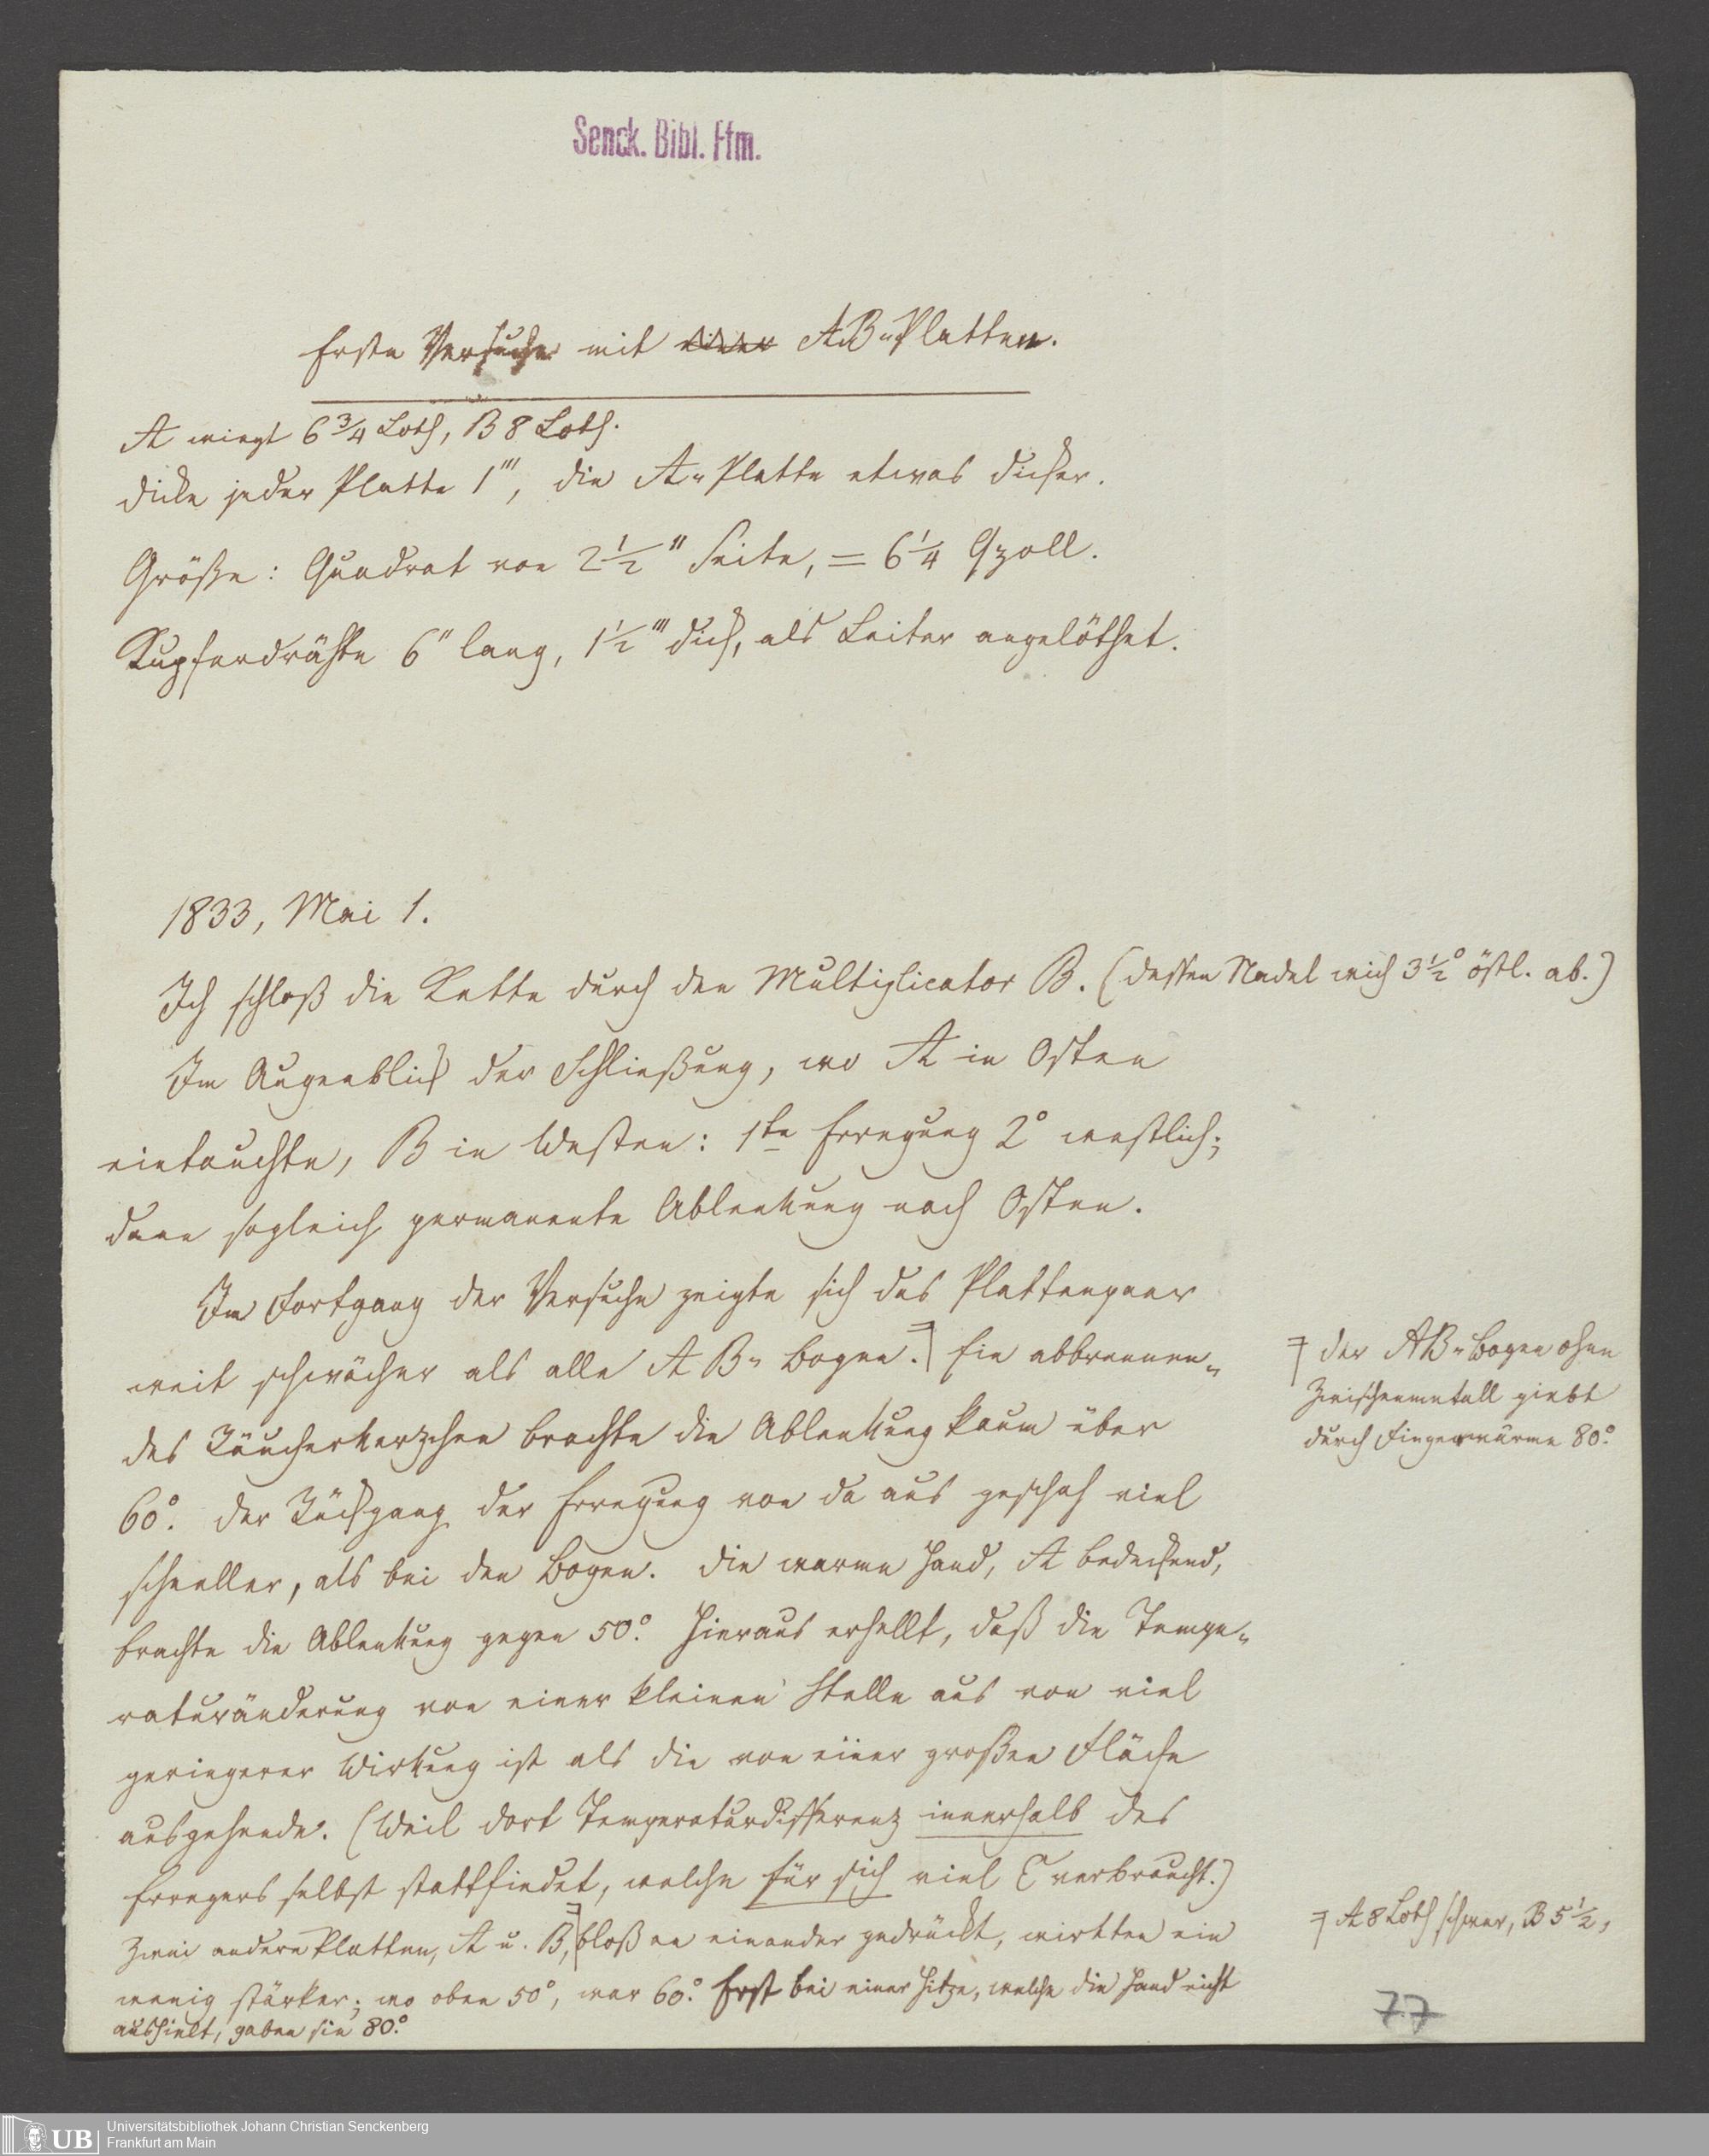 Senck. Bibl. Ffm.
Erste Versuche mit einer AB-Platten.
A wiegt 6 3/4 Loth, B 8 Loth.
Dicke jeder Platte 1''', die A-Platte etwas dicker.
Größe: Quadrat von 2 1/2'' Seite, = 6 1/4 Qzoll.
Kupferdrähte 6'' lang, 1 1/2''' dick, als Leiter angelöthet.
1833, Mai 1.
Ich schloß die Kette durch den Multiplicator B. (dessen Nadel wich 3 1/2° östl. ab.)
Im Augenblick der Schließung, wo A in Osten
eintauchte, B in Westen: 1te Erregung 2° westlich;
dann sogleich permanente Ablenkung nach Osten.
Im Fortgang der Versuche zeigte sich das Plattenpaar
weit schwächer als alle AB-Bogen. Ein abbrennen-
des Räucherkerzchen brachte die Ablenkung kaum über
60°. Der Rückgang der Erregung von da aus geschah viel
schneller, als bei den Bogen. Die warme Hand, A bedeckend,
brachte die Ablenkung gegen 50°. Hieraus erhellt, daß die Tempe-
raturänderung von einer kleinen Stelle aus von viel
geringerer Wirkung ist als die von einer großen Fläche
ausgehende. (Weil dort Temperaturdifferenz innerhalb des
Erregers selbst stattfindet, welche für sich viel E verbraucht.)
Zwei andere Platten, A u. B, bloß an einander gedrückt, wirkten ein
wenig stärker; wo oben 50°, war 60°. Erst bei einer Hitze, welche die Hand nicht
aushielt, gaben sie 80°.
der AB-Bogen ohne
Zwischenmetall giebt
durch Fingerwärme 80°.
A 8 Loth schwer, B 5 1/2,
77
UB
Universitätsbibliothek Johann Christian Senckenberg
Frankfurt am Main